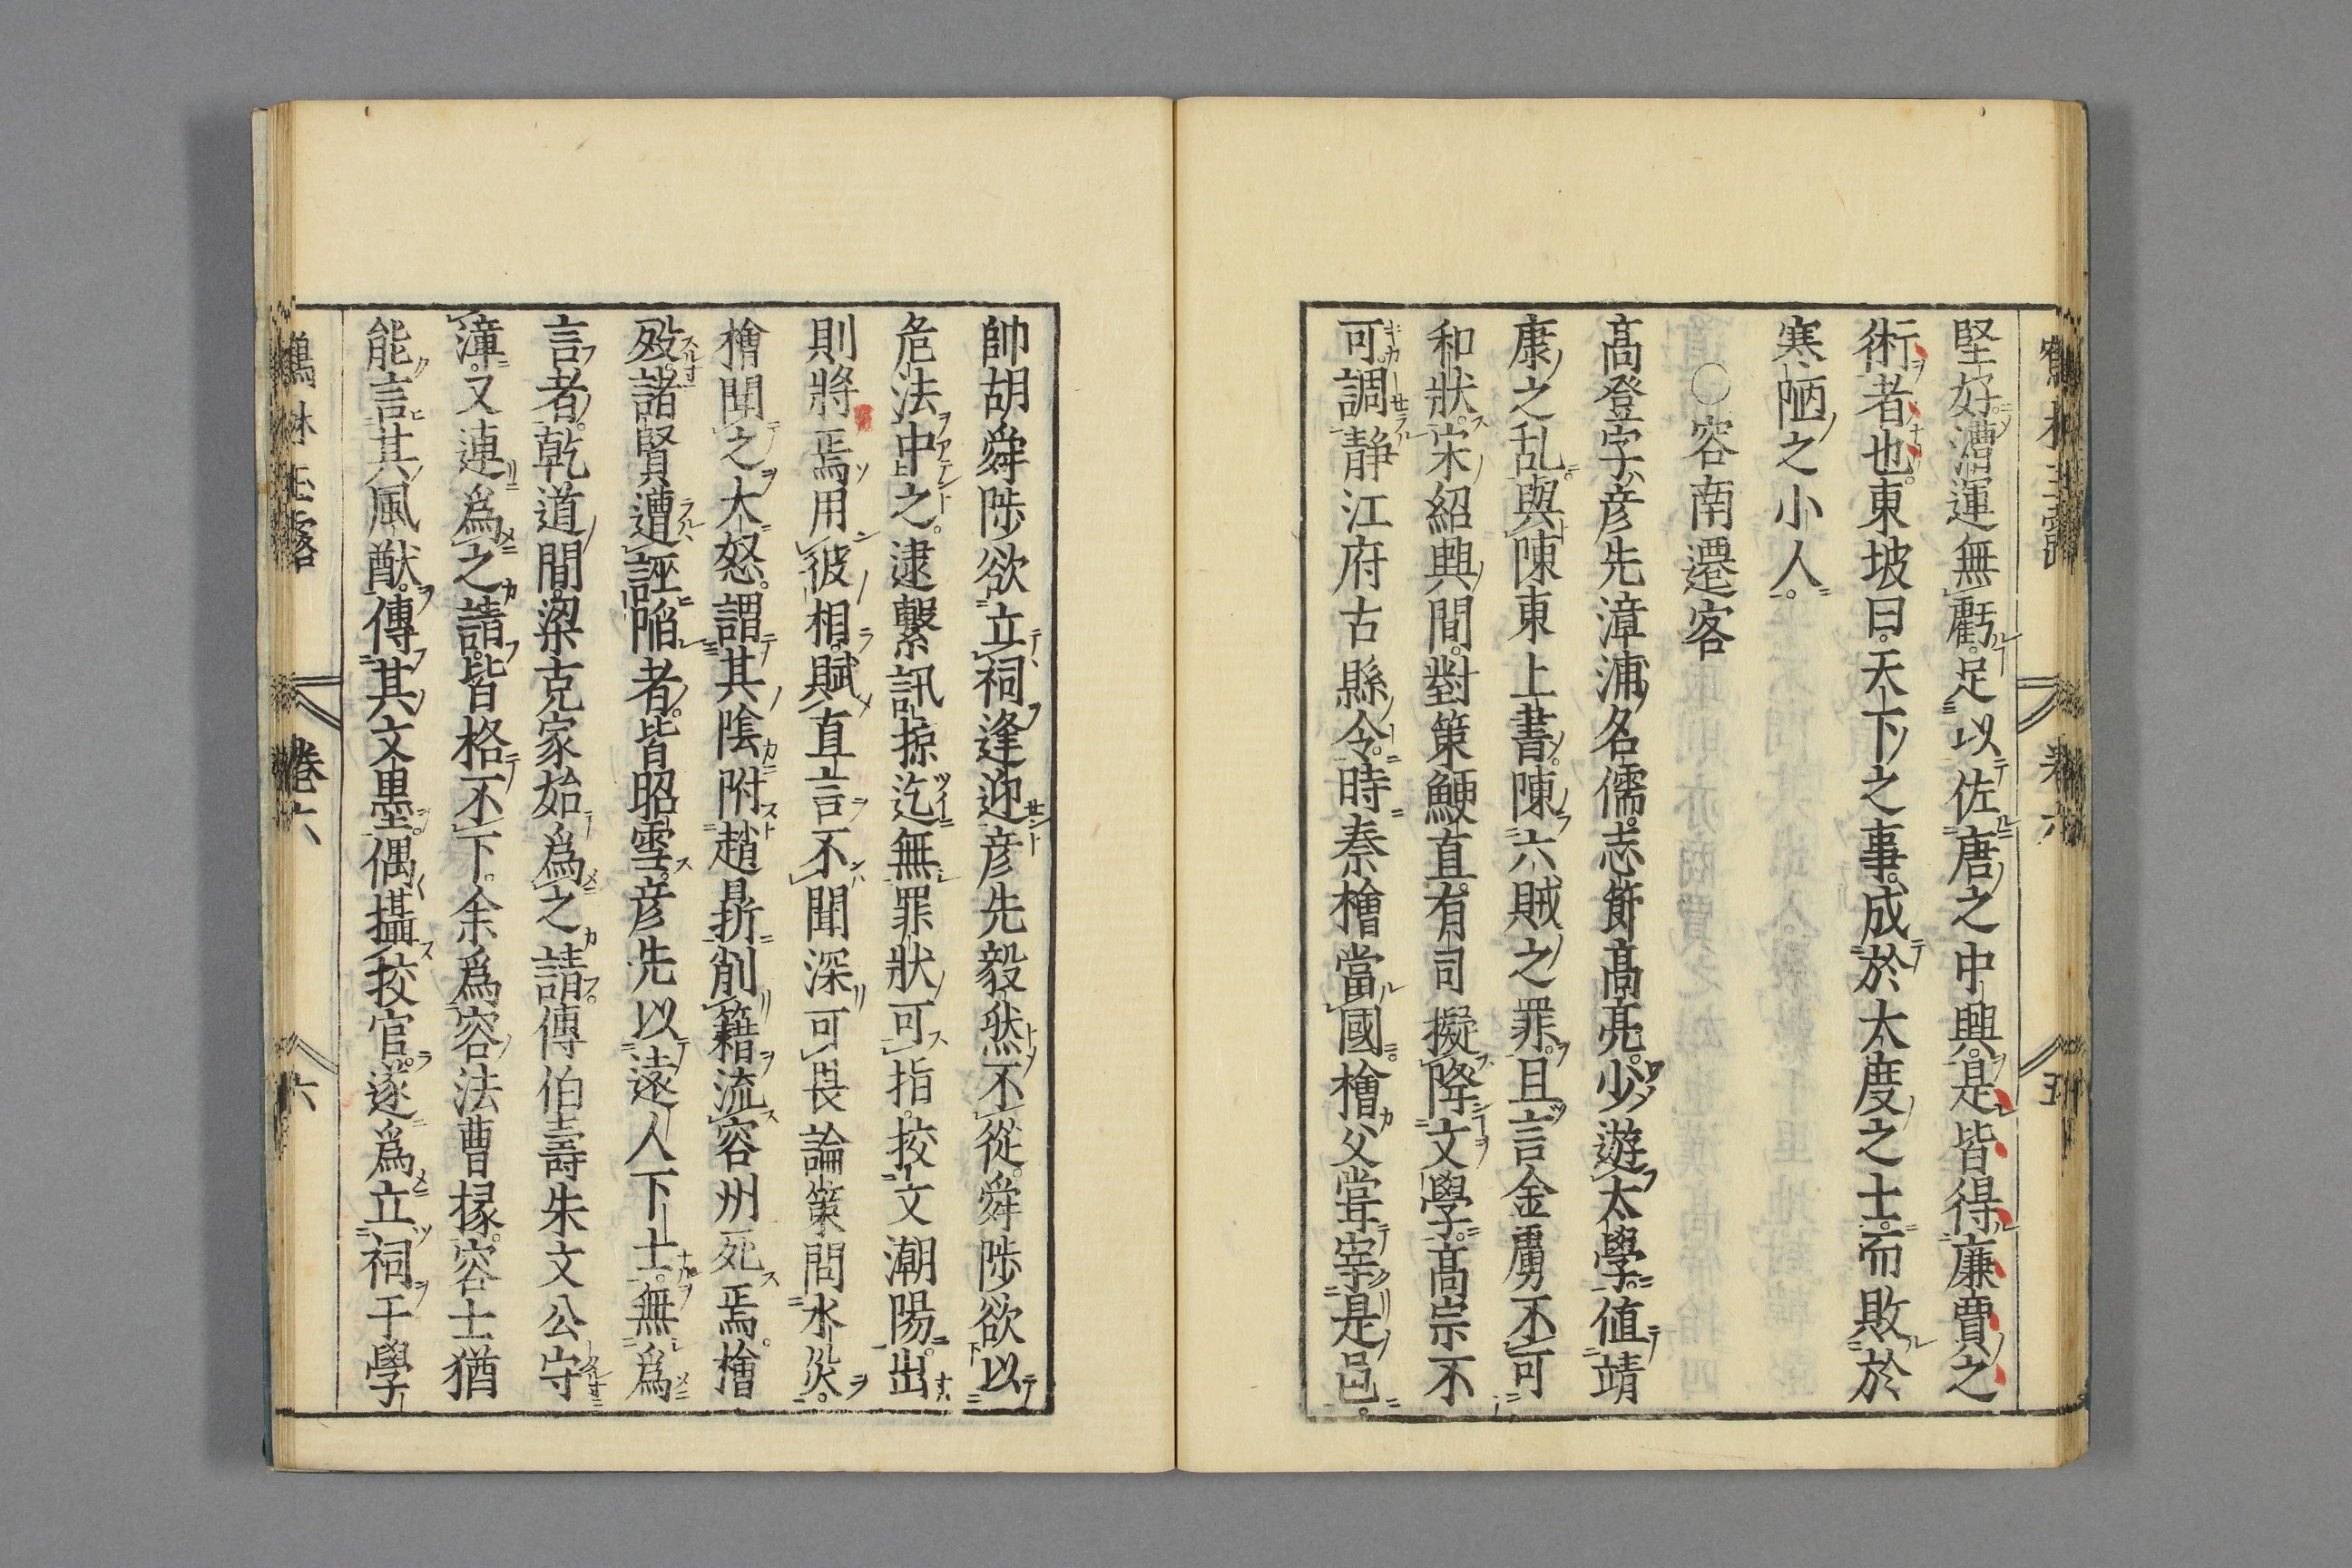 堅好漕運無虧足以佐唐之中興是皆得廉賈之
術者也東坡曰天下之事成於太度之士而敗於
寒陋之小人
○容南遷客
高登字彦先漳浦名儒志節高亮少遊太學值靖
康之乱與陳東上書陳六賊之罪且言金虜不可
和狀宋紹興間對策鯁直有司擬降文學高宗不
可調静江府古縣令時秦檜當國檜父甞宰是邑
帥胡舜陟欲立祠逢迎彦先毅然不從舜陟欲以
危法中之逮繫訊掠迄無罪狀可指挍文潮陽出
則將焉用彼相賦直言不聞深可畏論策問水災
檜聞之大怒謂其陰附趙鼎削籍流容州死焉檜
殁諸賢遭誣陷者皆昭雪彦先以遠人下士無爲
言者乾道間梁克家始爲之請傳伯壽朱文公守
漳又連爲之請皆格不下余爲容法曹掾容士猶
能言其風猷傳其文墨偶攝挍官遂爲立祠于學
鶴林玉露
卷六
六